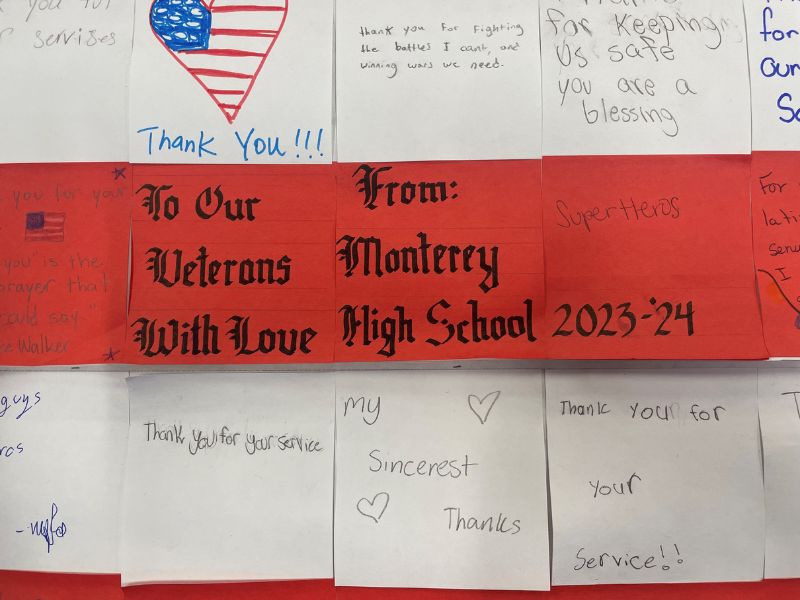 you for
services
Thank You!!!
thank you for fighting
the battles I cant, and
winning wars we need.
for keeping
us safe
you are a
blessing
for
our
you for your
you" is the
prayer that
could say."
Walker
To Our
Veterans
With Love
From:
Monterey
High School
SuperHeros
2023-24
For
I
guys
Thank you for your service
My
Sincerest
Thanks
Thank your for
your
Service!!